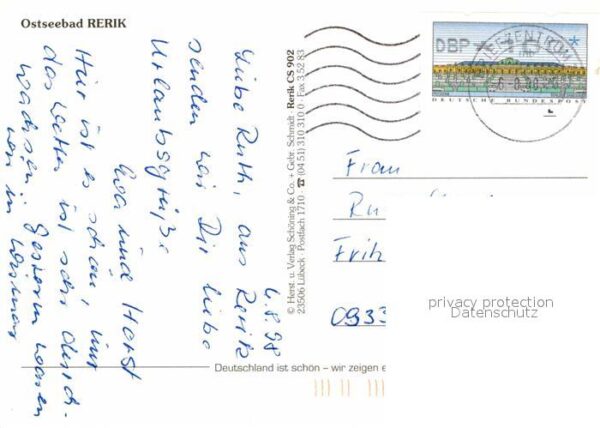 Ostseebad RERIK
6.8.98
Liebe Ruth, aus Rerik
senden wir Dir liebe
Urlaubsgrüße
Eva und Horst
Hier ist es schön, nur
das Wetter ist sehr durch-
wachsen. Gestern waren
wir in Wismar
© Herst. u. Verlag Schöning & Co. + Gebr. Schmidt · Rerik CS 902
23506 Lübeck · Postfach 1710 · ☎ (04 51) 310 310 0 · Fax 3 52 83
DBP
BRIEFZENTRUM
DEUTSCHE BUNDESPOST
Frau
Ru
Frih
0933
privacy protection
Datenschutz
Deutschland ist schön – wir zeigen e